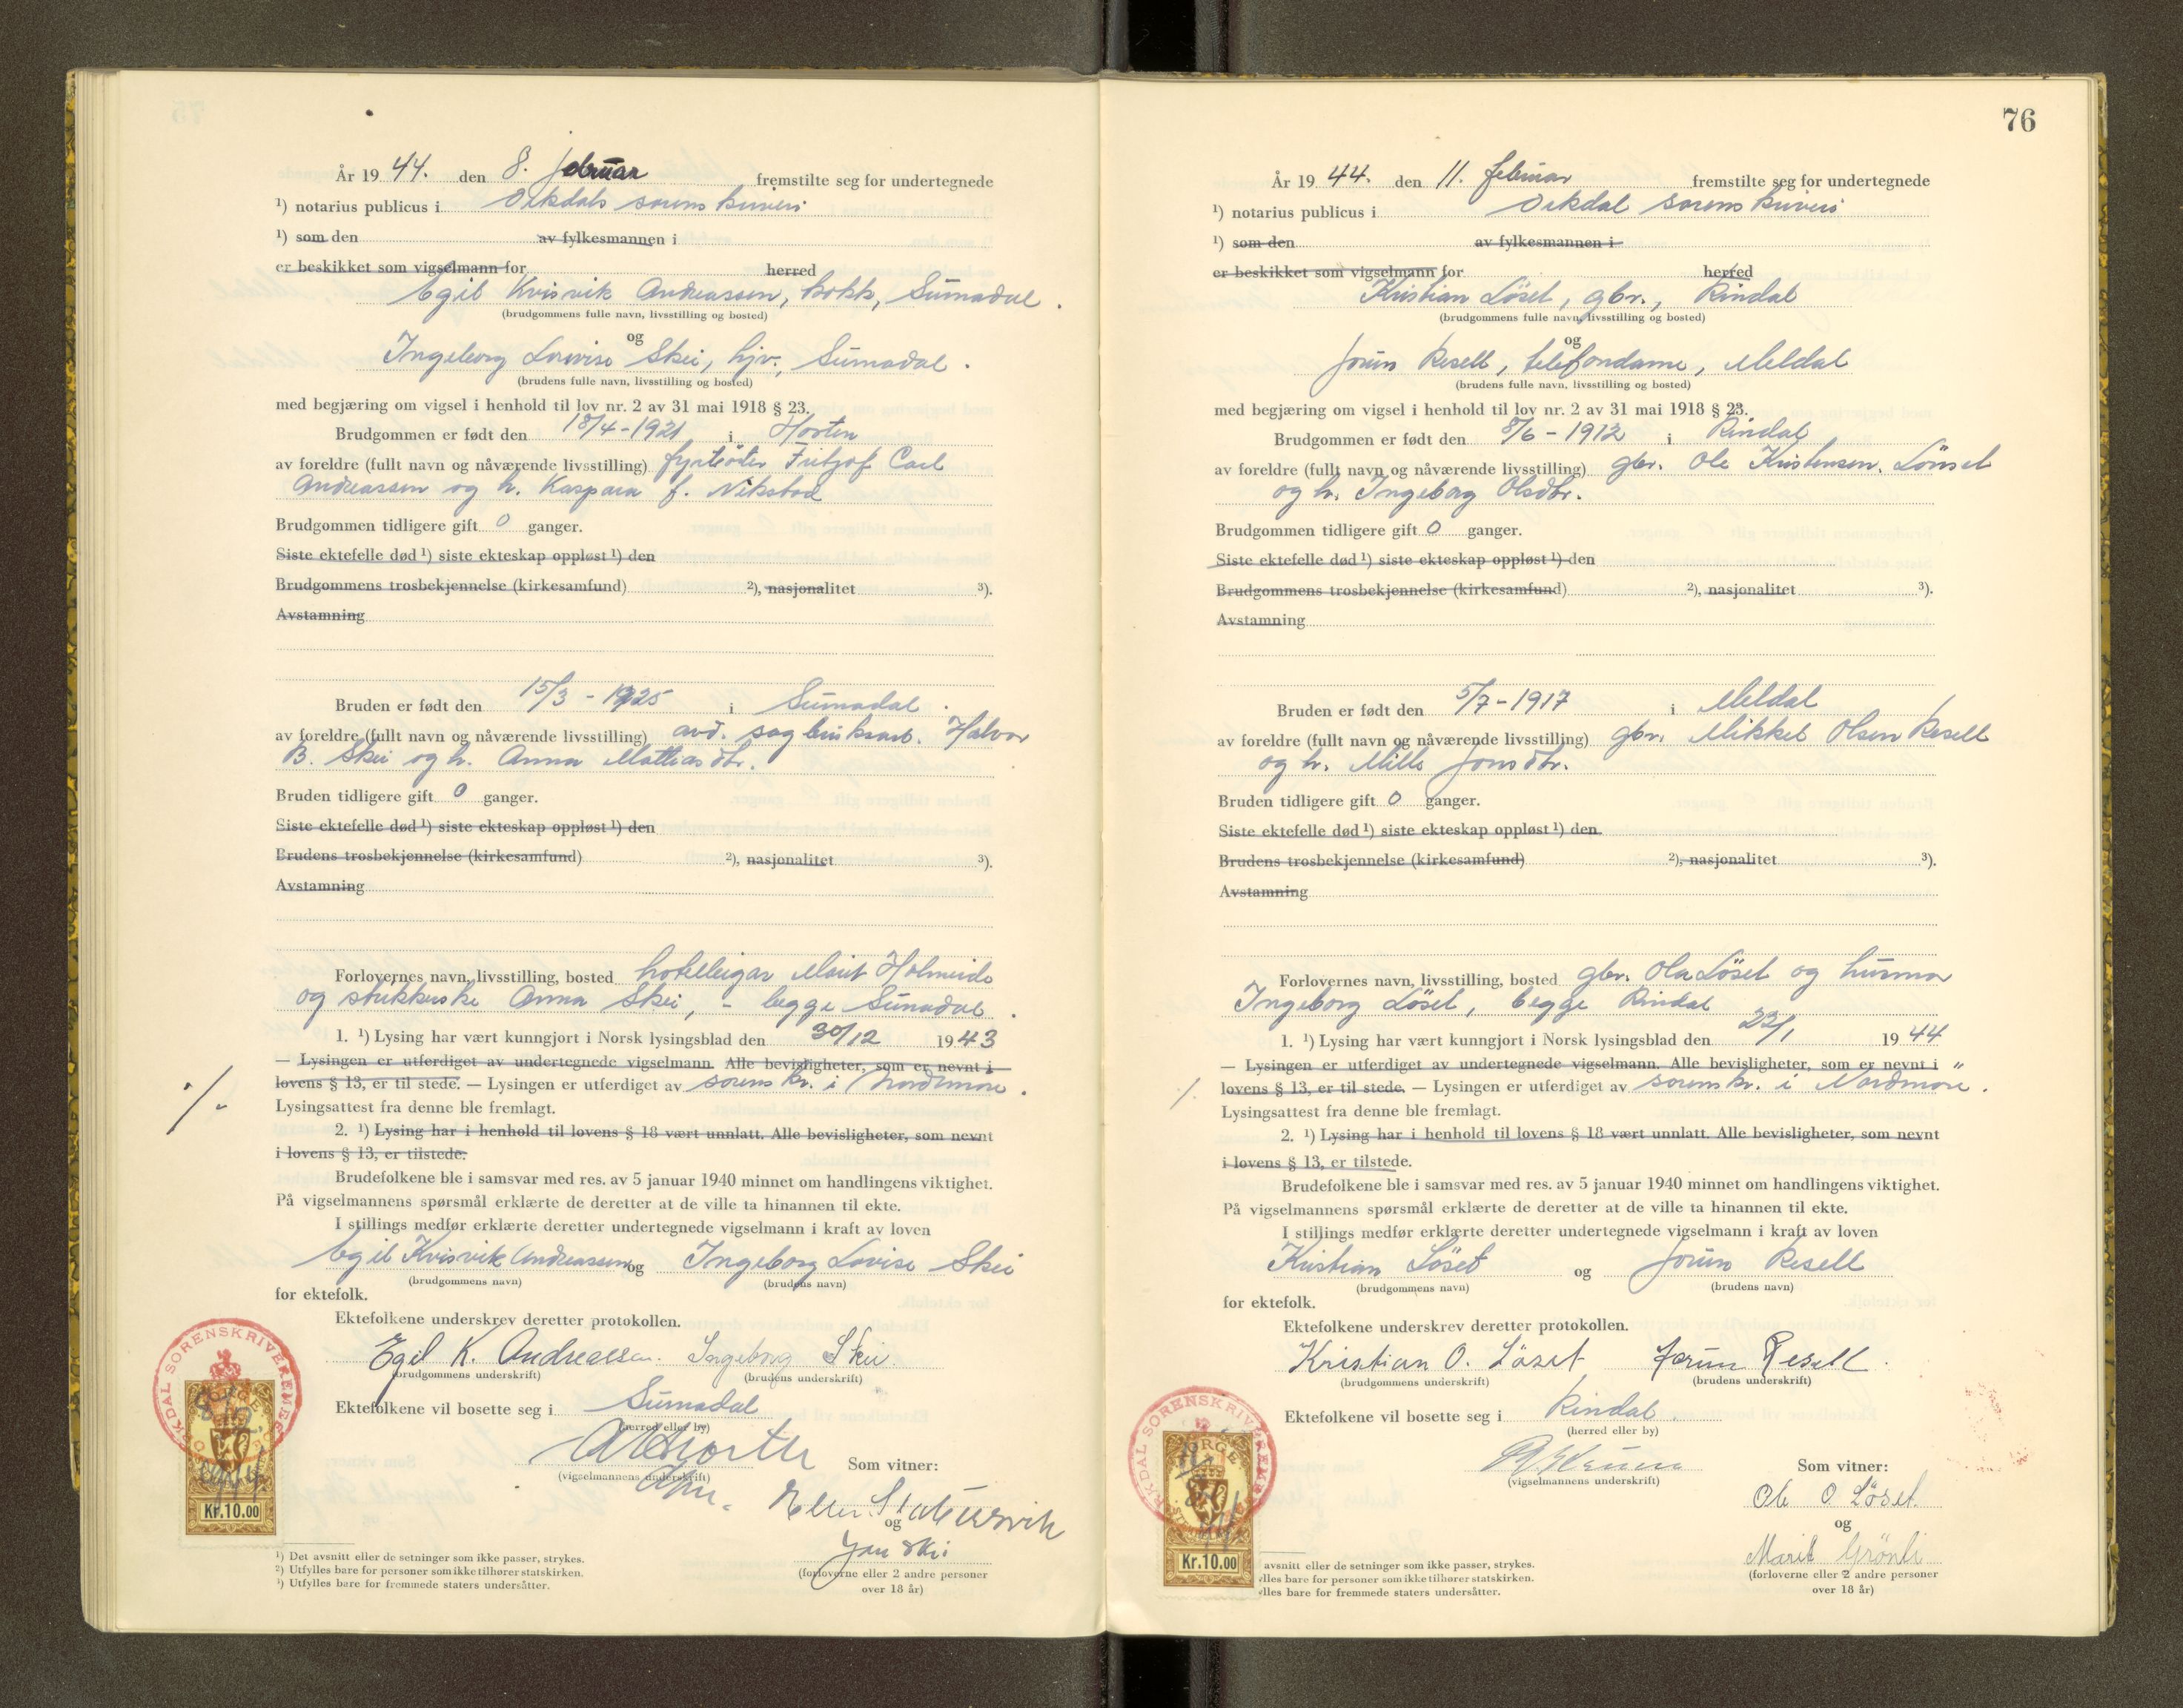 År 19 44. den 8. februar fremstilte seg for undertegnede
¹) notarius publicus i Orkdals sorenskriveri
¹) som den av fylkesmannen i
er beskikket som vigselmann for herred
Egil Kvisvik Andreassen, kokk, Surnadal.
(brudgommens fulle navn, livsstilling og bosted)
og
Ingeborg Lovise Skei, hjv., Surnadal.
(brudens fulle navn, livsstilling og bosted)
med begjæring om vigsel i henhold til lov nr. 2 av 31 mai 1918 § 23.
Brudgommen er født den 18/4 - 1921 i Horten
av foreldre (fullt navn og nåværende livsstilling) fyrbøter Fritjof Carl
Andreassen og h. Kaspara f.
Brudgommen tidligere gift 0 ganger.
Siste ektefelle død ¹) siste ekteskap oppløst ¹) den
Brudgommens trosbekjennelse (kirkesamfund) ²), nasjonalitet ³).
Avstamning
Bruden er født den 15/3 - 1925 i Surnadal.
av foreldre (fullt navn og nåværende livsstilling) avd. sagbruksarb. Halvor
B. Skei og h. Anna Mathiasdtr.
Bruden tidligere gift 0 ganger.
Siste ektefelle død ¹) siste ekteskap oppløst ¹) den
Brudens trosbekjennelse (kirkesamfund) ²), nasjonalitet ³).
Avstamning
Forlovernes navn, livsstilling, bosted hotelleigar Marit Holmeide
og strikkerske Anna Skei, - begge Surnadal.
1. ¹) Lysing har vært kunngjort i Norsk lysingsblad den 30/12 1943
— Lysingen er utferdiget av undertegnede vigselmann. Alle bevisligheter, som er nevnt i
lovens § 13, er til stede. — Lysingen er utferdiget av sorenskr. i Nordmøre.
Lysingsattest fra denne ble fremlagt.
2. ¹) Lysing har i henhold til lovens § 18 vært unnlatt. Alle bevisligheter, som nevnt
i lovens § 13, er tilstede.
Brudefolkene ble i samsvar med res. av 5 januar 1940 minnet om handlingens viktighet.
På vigselmannens spørsmål erklærte de deretter at de ville ta hinannen til ekte.
I stillings medfør erklærte deretter undertegnede vigselmann i kraft av loven
Egil Kvisvik Andreassen og Ingeborg Lovise Skei
(brudgommens navn) (brudens navn)
for ektefolk.
Ektefolkene underskrev deretter protokollen.
Egil K. Andreassen. Ingeborg Skei.
(brudgommens underskrift) (brudens underskrift)
Ektefolkene vil bosette seg i Surnadal
(herred eller by)
(vigselmannens underskrift) Som vitner:
og
(forloverne eller 2 andre personer
over 18 år)
ORKDAL SORENSKRIVEREMBEDE
NORGE
Kr.10.00
¹) Det avsnitt eller de setninger som ikke passer, strykes.
²) Utfylles bare for personer som ikke tilhører statskirken.
³) Utfylles bare for fremmede staters undersåtter.
76
År 19 44. den 11. februar fremstilte seg for undertegnede
¹) notarius publicus i Orkdal sorenskriveri
¹) som den av fylkesmannen i
er beskikket som vigselmann for herred
Kristian Löset, gbr., Rindal
(brudgommens fulle navn, livsstilling og bosted)
og
Jorun Resell, telefondame, Meldal
(brudens fulle navn, livsstilling og bosted)
med begjæring om vigsel i henhold til lov nr. 2 av 31 mai 1918 § 23.
Brudgommen er født den 8/6 - 1912 i Rindal
av foreldre (fullt navn og nåværende livsstilling) gbr. Ole Kristensen Lönset
og h. Ingeborg Olsdtr.
Brudgommen tidligere gift 0 ganger.
Siste ektefelle død ¹) siste ekteskap oppløst ¹) den
Brudgommens trosbekjennelse (kirkesamfund) ²), nasjonalitet ³).
Avstamning
Bruden er født den 5/7 - 1917 i Meldal
av foreldre (fullt navn og nåværende livsstilling) gbr. Mikkel Olsen Resell
og h. Mille Jonsdtr.
Bruden tidligere gift 0 ganger.
Siste ektefelle død ¹) siste ekteskap oppløst ¹) den
Brudens trosbekjennelse (kirkesamfund) ²), nasjonalitet ³).
Avstamning
Forlovernes navn, livsstilling, bosted gbr. Ola Löset og husmor
Ingeborg Löset, begge Rindal
1. ¹) Lysing har vært kunngjort i Norsk lysingsblad den 22/1 1944
— Lysingen er utferdiget av undertegnede vigselmann. Alle bevisligheter, som er nevnt i
lovens § 13, er til stede. — Lysingen er utferdiget av sorenskr. i Nordmöre.
Lysingsattest fra denne ble fremlagt.
2. ¹) Lysing har i henhold til lovens § 18 vært unnlatt. Alle bevisligheter, som nevnt
i lovens § 13, er tilstede.
Brudefolkene ble i samsvar med res. av 5 januar 1940 minnet om handlingens viktighet.
På vigselmannens spørsmål erklærte de deretter at de ville ta hinannen til ekte.
I stillings medfør erklærte deretter undertegnede vigselmann i kraft av loven
Kristian Löset og Jorun Resell
(brudgommens navn) (brudens navn)
for ektefolk.
Ektefolkene underskrev deretter protokollen.
Kristian O. Löset Jorun Resell.
(brudgommens underskrift) (brudens underskrift)
Ektefolkene vil bosette seg i Rindal.
(herred eller by)
(vigselmannens underskrift) Som vitner:
Ole O. Löset
og
Marit Grönli
(forloverne eller 2 andre personer
over 18 år)
ORKDAL SORENSKRIVEREMBEDE
NORGE
Kr.10.00
avsnitt eller de setninger som ikke passer, strykes.
lles bare for personer som ikke tilhører statskirken.
lles bare for fremmede staters undersåtter.